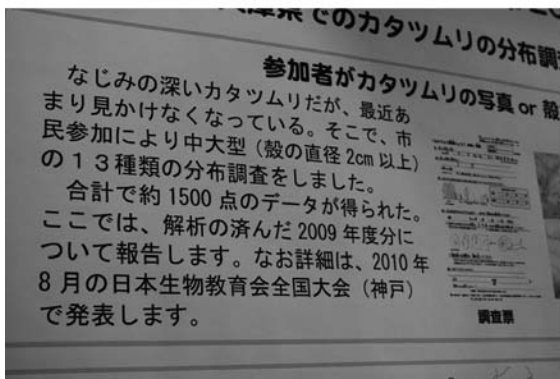 庫県でのカタツムリの分布調
参加者がカタツムリの写真 or 殻
なじみの深いカタツムリだが、最近あ
まり見かけなくなっている。そこで、市
民参加により中大型（殻の直径 2cm 以上）
の１３種類の分布調査をしました。
合計で約 1500 点のデータが得られた。
ここでは、解析の済んだ 2009 年度分に
ついて報告します。なお詳細は、2010 年
8 月の日本生物教育会全国大会（神戸）
で発表します。
調査票